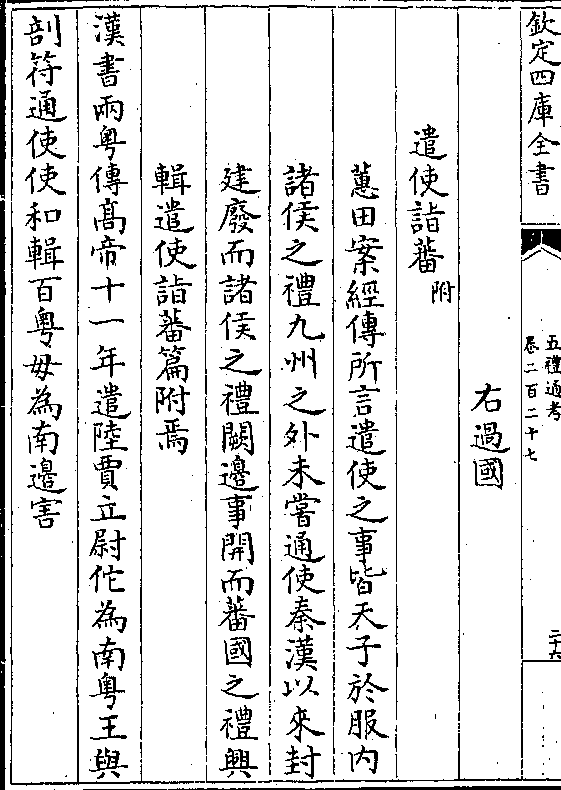 欽定四庫全書
五禮通考
卷二百二十七
二十六
右過國
遣使詣蕃附
蕙田案經傳所言遣使之事皆天子於服内
諸侯之禮九州之外未嘗通使秦漢以來封
建廢而諸侯之禮闕邊事開而蕃國之禮興
輯遣使詣蕃篇附焉
漢書兩粤傳髙帝十一年遣陸賈立尉佗為南粤王與
剖符通使使和輯百粤毋為南邊害